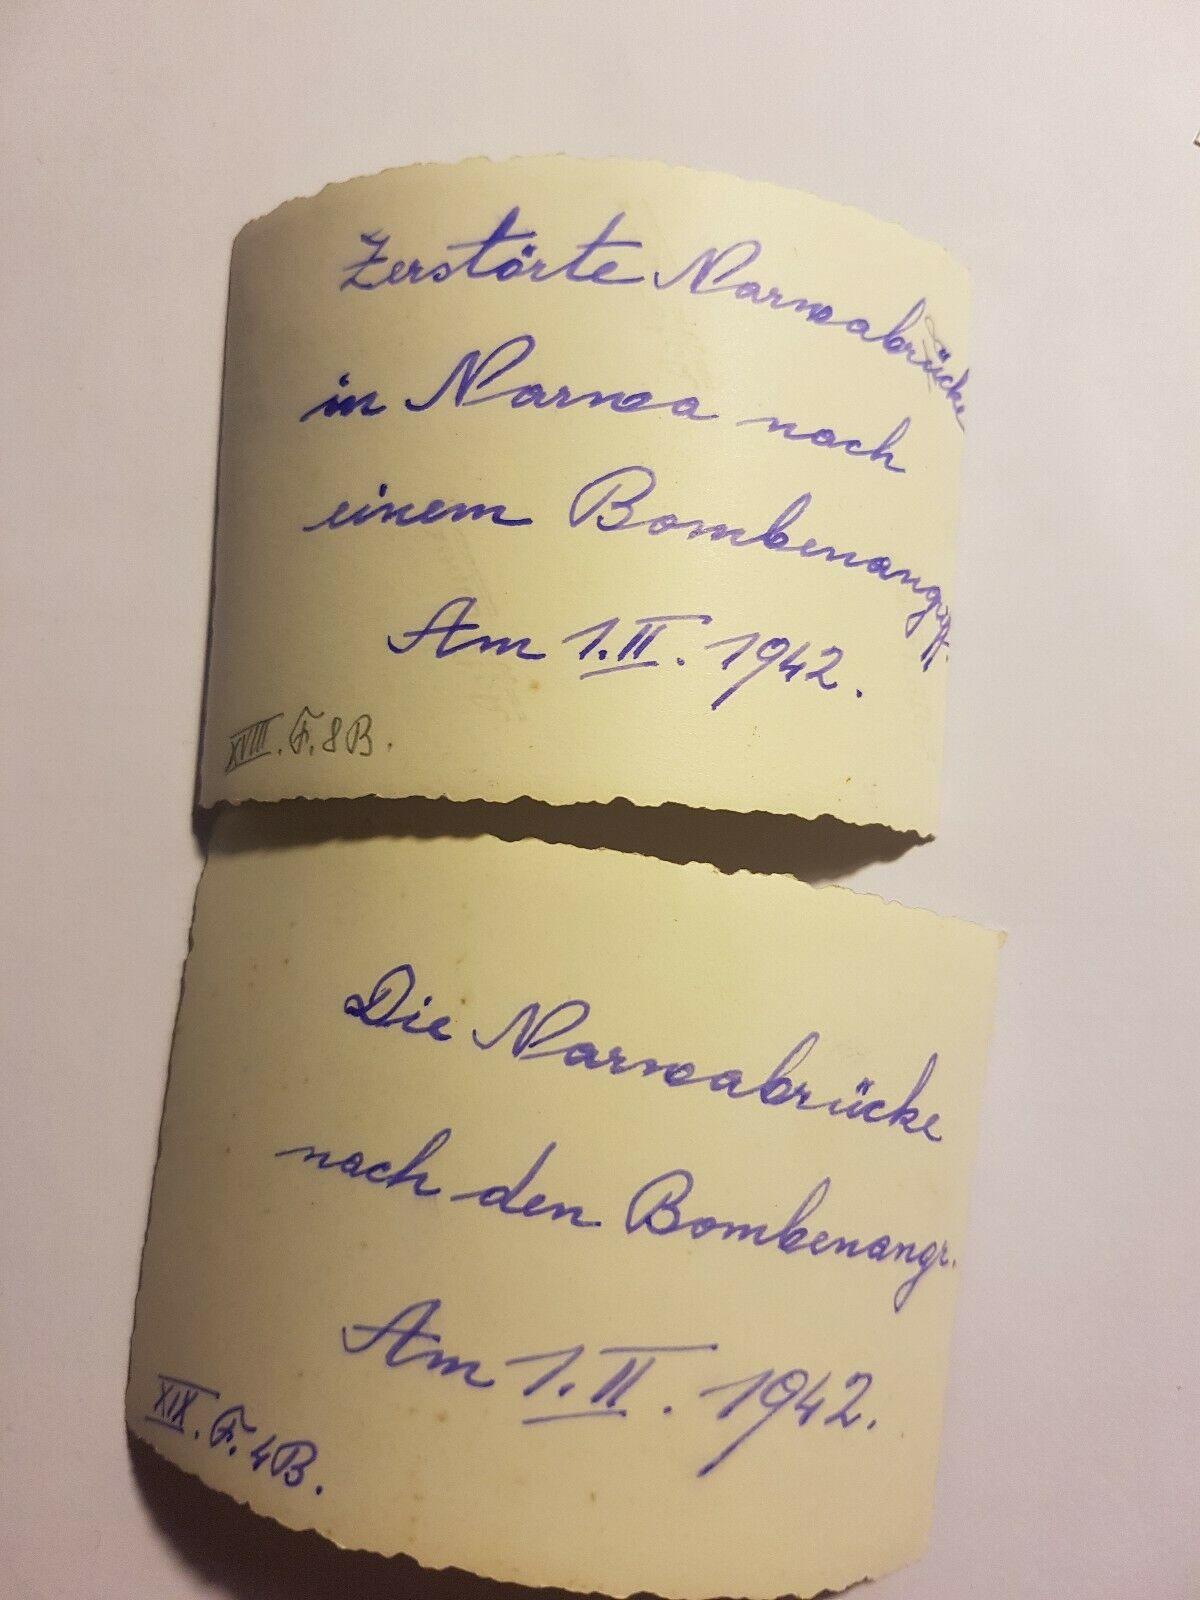 Zerstörte Narwabrücke
in Narwa nach
einem Bombenangr.
Am 1.II. 1942.
XVIII. F. 8 B.
Die Narwabrücke
nach den Bombenangr.
Am 1.II. 1942.
XIX. F. 4 B.